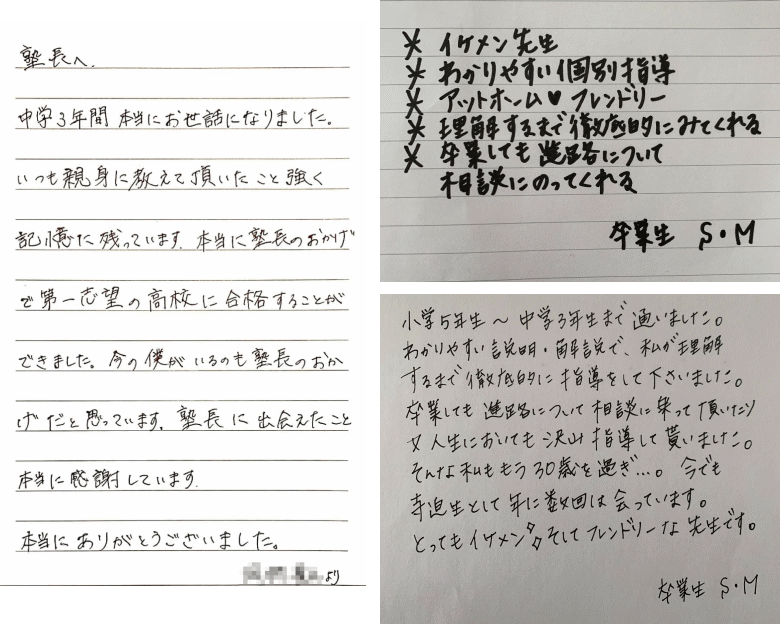 塾長へ
中学3年間 本当にお世話になりました。
いつも親身に教えて頂いたこと強く
記憶に残っています。本当に塾長のおかげ
で第一志望の高校に合格することが
できました。今の僕がいるのも塾長のおか
げだと思っています。塾長に出会えたこと
本当に感謝しています。
本当にありがとうございました。
より
* イケメン先生
* わかりやすい個別指導
* アットホーム♥フレンドリー
* 理解するまで徹底的にみてくれる
* 卒業しても進路について
相談にのってくれる
卒業生 S・M
小学5年生〜中学3年生まで通いました。
わかりやすい説明・解説で、私が理解
するまで徹底的に指導をして下さいました。
卒業しても進路について相談に乗って頂いたり
人生においても沢山指導して貰いました。
そんな私ももう30歳を過ぎ…。今でも
年に数回は会っています。
とってもイケメンそしてフレンドリーな先生です。
卒業生 S・M